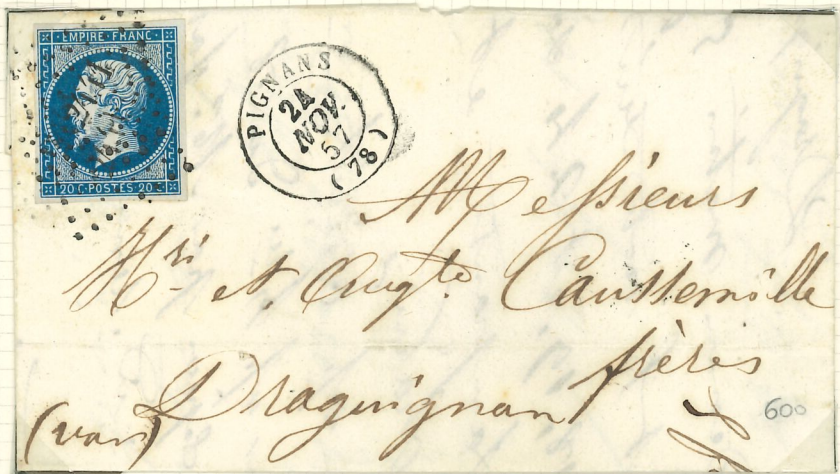 EMPIRE FRANC
20 C. POSTES 20 C.
PIGNANS
24
NOV.
57
(78)
Messieurs
Hri et Augte Caussemille
frères
Draguignan
(var)
600